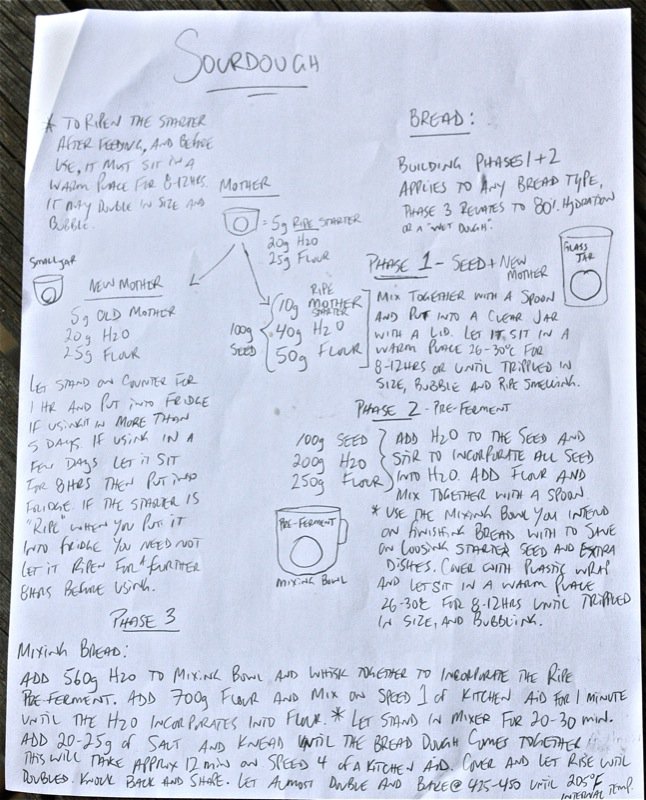 SOURDOUGH
* TO RIPEN THE STARTER
AFTER FEEDING, AND BEFORE
USE, IT MUST SIT IN A
WARM PLACE FOR 8-12HRS.
IT MAY DOUBLE IN SIZE AND
BUBBLE.
MOTHER
= 5g RIPE STARTER
20g H2O
25g FLOUR
SMALL JAR
NEW MOTHER
5g OLD MOTHER
20g H2O
25g FLOUR
100g
SEED
RIPE
10g MOTHER
STARTER
40g H2O
50g FLOUR
LET STAND ON COUNTER FOR
1 HR AND PUT INTO FRIDGE
IF USING IT IN MORE THAN
5 DAYS. IF USING IN A
FEW DAYS LET IT SIT
FOR 8HRS THEN PUT INTO
FRIDGE. IF THE STARTER IS
"RIPE" WHEN YOU PUT IT
INTO FRIDGE YOU NEED NOT
LET IT RIPEN FOR FURTHER
8HRS BEFORE USING.
BREAD:
BUILDING PHASES 1+2
APPLIES TO ANY BREAD TYPE,
PHASE 3 RELATES TO 80% HYDRATION
OR A "WET DOUGH".
PHASE 1 - SEED + NEW
MOTHER
GLASS
JAR
MIX TOGETHER WITH A SPOON
AND PUT INTO A CLEAR JAR
WITH A LID. LET IT SIT IN A
WARM PLACE 26-30°C FOR
8-12HRS OR UNTIL TRIPPLED IN
SIZE, BUBBLE AND RIPE SMELLING.
PHASE 2 - PRE-FERMENT
100g SEED
200g H2O
250g FLOUR
ADD H2O TO THE SEED AND
STIR TO INCORPORATE ALL SEED
INTO H2O. ADD FLOUR AND
MIX TOGETHER WITH A SPOON.
* USE THE MIXING BOWL YOU INTEND
ON FINISHING BREAD WITH TO SAVE
ON LOOSING STARTER SEED AND EXTRA
DISHES. COVER WITH PLASTIC WRAP
AND LET SIT IN A WARM PLACE
26-30°C FOR 8-12HRS UNTIL TRIPPLED
IN SIZE, AND BUBBLING.
PRE-FERMENT
MIXING BOWL
PHASE 3
MIXING BREAD:
ADD 560g H2O TO MIXING BOWL AND WHISK TOGETHER TO INCORPORATE THE RIPE
PRE-FERMENT. ADD 700g FLOUR AND MIX ON SPEED 1 of KITCHEN AID FOR 1 MINUTE
UNTIL THE H2O INCORPORATES INTO FLOUR. * LET STAND IN MIXER FOR 20-30 MIN.
ADD 20-25g of SALT AND KNEAD UNTIL THE BREAD DOUGH COMES TOGETHER
THIS WILL TAKE APPROX 12 MIN ON SPEED 4 of A KITCHEN AID. COVER AND LET RISE UNTIL
DOUBLED. KNOCK BACK AND SHAPE. LET ALMOST DOUBLE AND BAKE @ 425-450 UNTIL 205°F
INTERNAL TEMP.